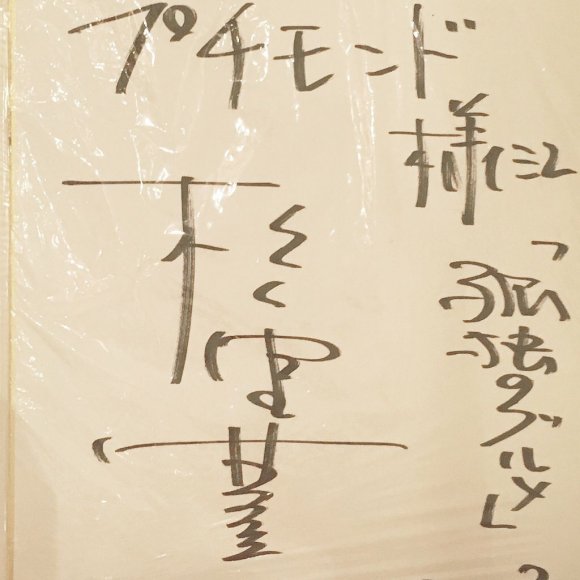 プチモンド
様
松重豊
「孤独のグルメ」